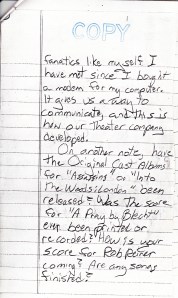 COPY
fanatics like myself I
have met since I bought
a modem for my computer.
It gives us a way to
communicate, and this is
how our Theater company
developed.
On another note, have
the Original Cast Albums
for "Assassins" or "Into
The Woods: London" been
released? Was the score
for "A Pray by Blecht"
ever been printed or
recorded? How is your
score for Rob Reiner
coming? Are any songs
finished?